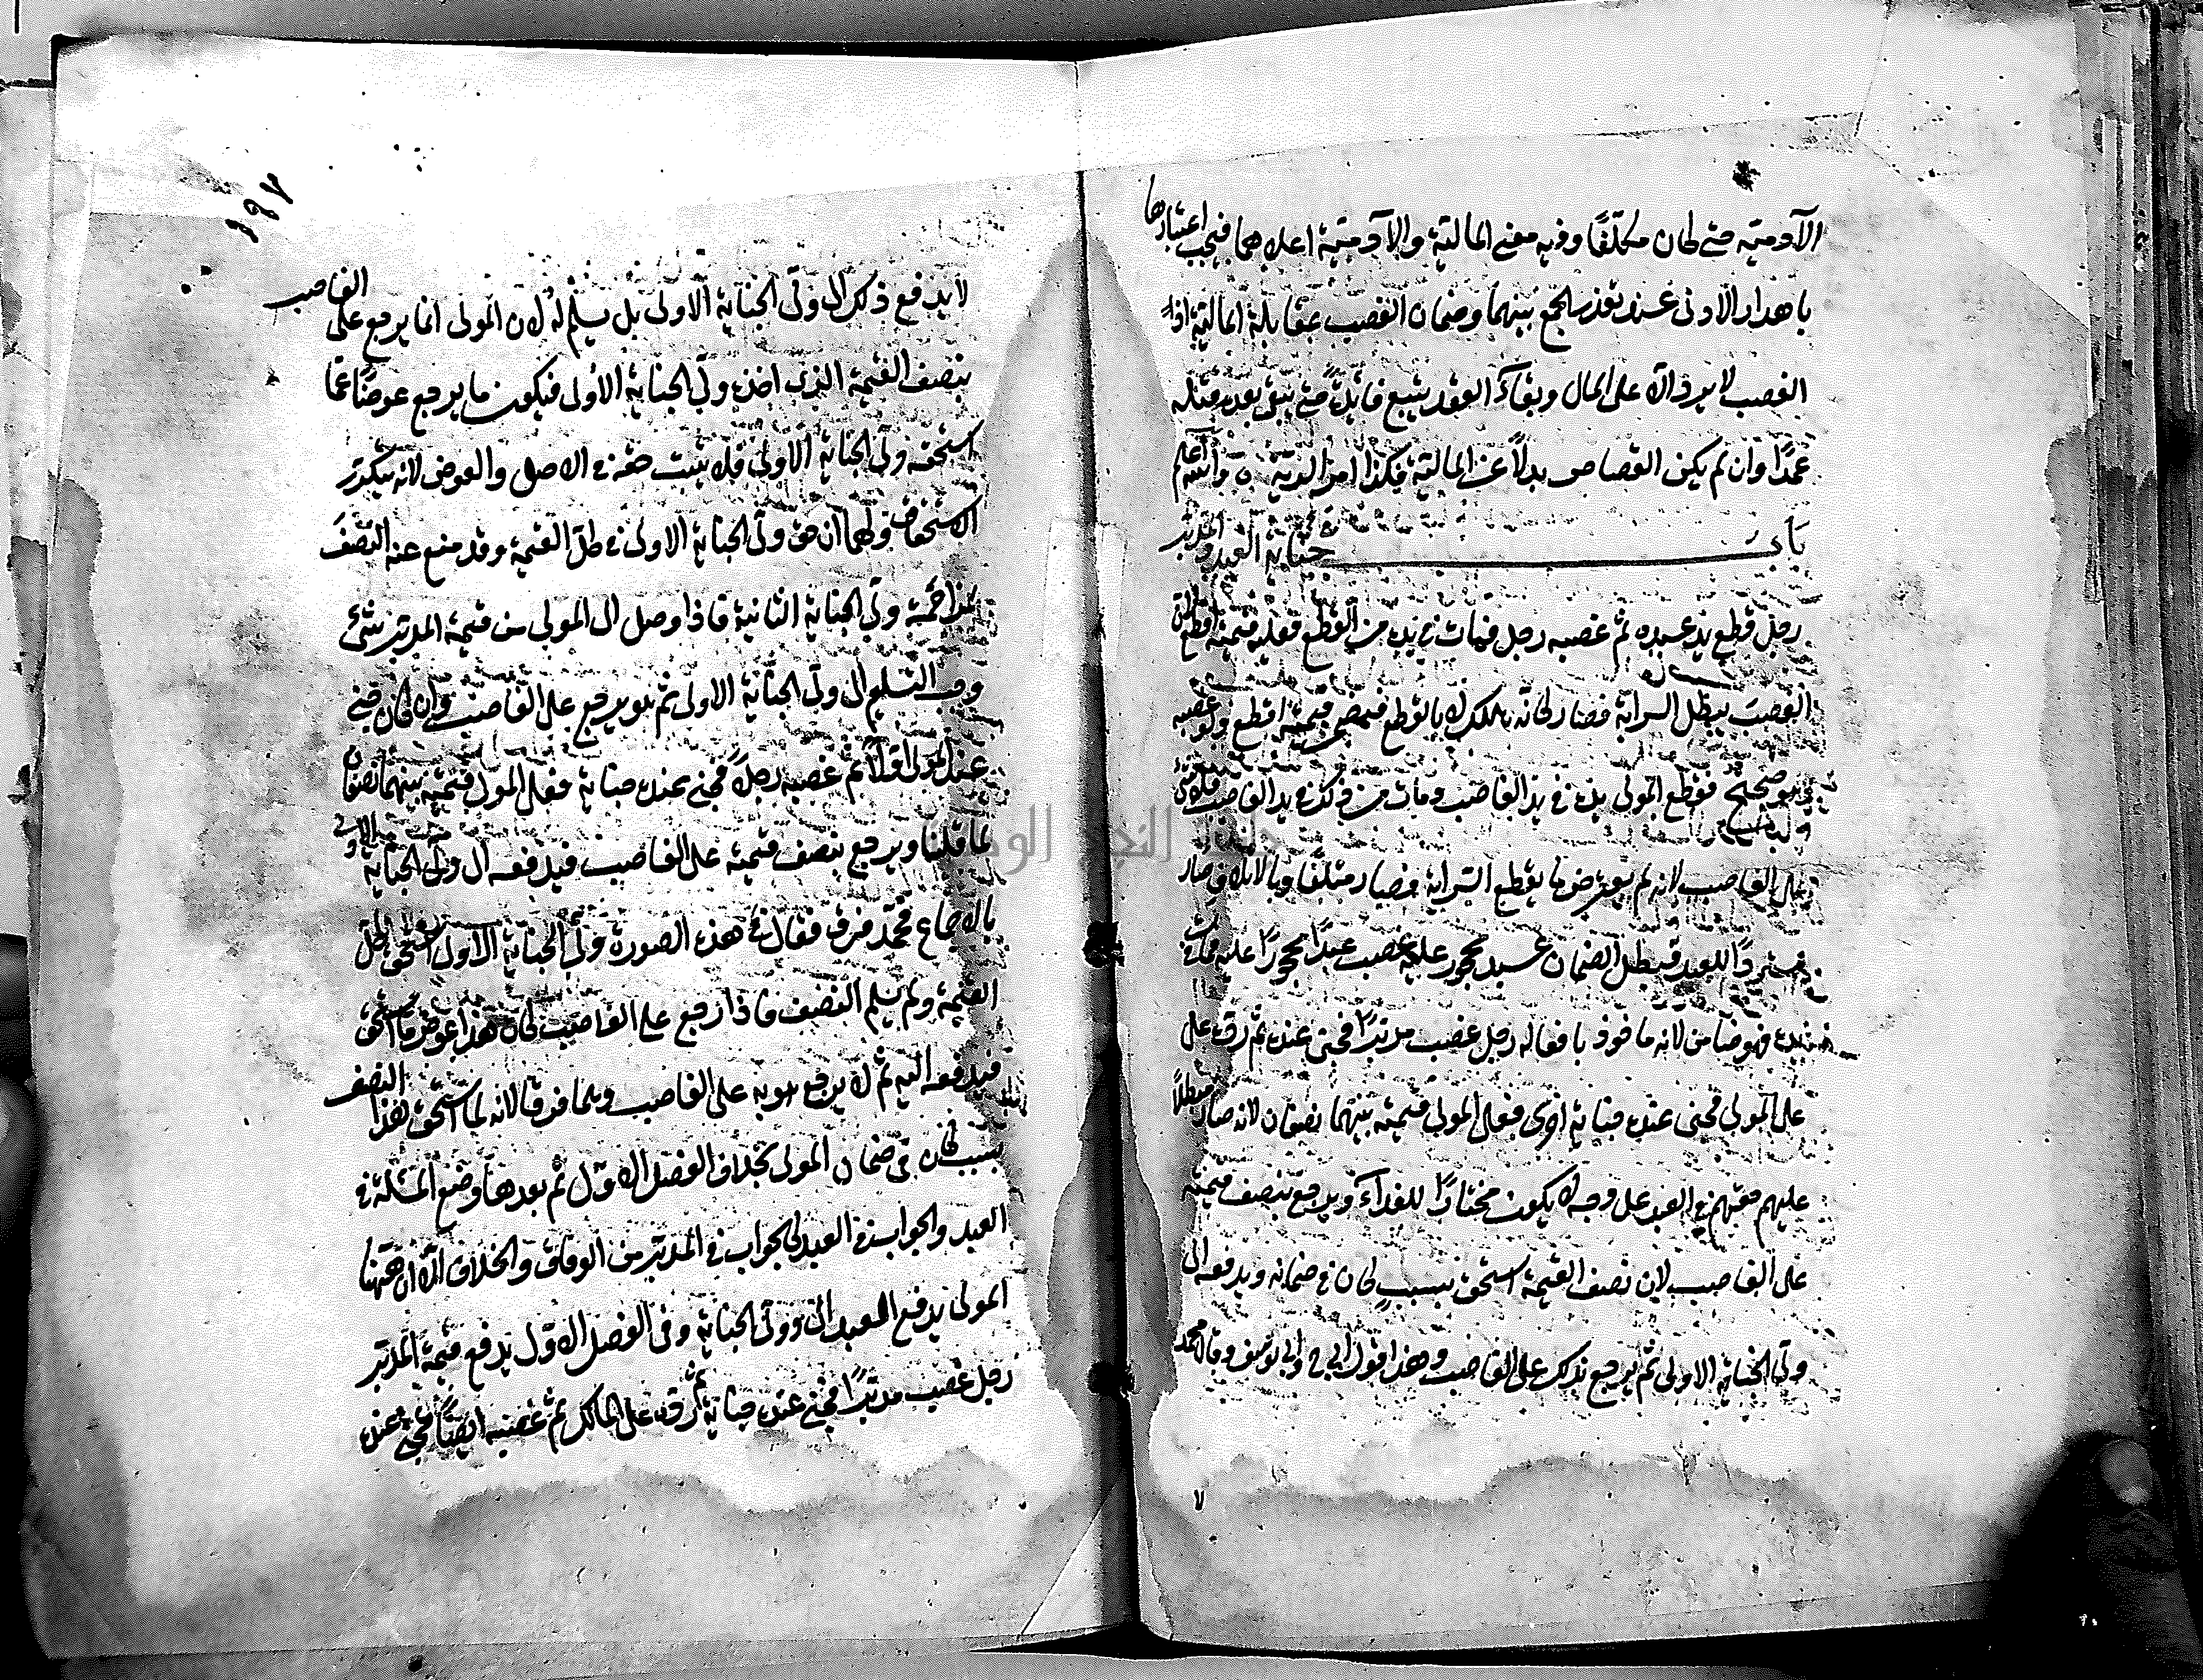 الآدمية حتى كان مكلفا وفيه معنى المالية والآدمية اعلاهما فيجب اعتبارها
باهدار الادنى عند تعذر الجمع بينهما وضمان الغصب بمقابلة المالية اذ
الغصب لا يرد الا على المال وبقاء العقد يتبع فائدة حتى يبقى بعد قتله
عمدا وان لم يكن القصاص بدلا عن المالية فكذا امر الدية والله اعلم
باب جناية العبد والمدبر
رجل قطع يد عبده ثم غصبه رجل فمات في يده من القطع فعليه قيمته اقطع لان
الغصب يبطل السراية فصار كانه هلك بالقطع فيضمن قيمته اقطع ولو غصبه
وهو صحيح فقطع المولى يده في يد الغاصب ومات من ذلك في يد الغاصب فلا شئ
على الغاصب لانه لم يعترض ما يقطع السراية فصار متلفا وبالاتلاف صار
مستردا للعبد فبطل الضمان عبد محجور عليه غصب عبدا محجورا عليه فمات
في يده فهو ضامن لانه مأخوذ بافعاله رجل غصب مدبرا فجنى عنده ثم رده على
على المولى فجنى عنده جناية اخرى فعلى المولى قيمته بينهما نصفان لانه صار مبطلا
عليهم حقهم في العبد على وجه لا يكون مختارا للفداء ويرجع بنصف قيمته
على الغاصب لان نصف القيمة استحق بسبب كان في ضمانه ويدفعه الى
ولي الجناية الاولى ثم يرجع بذلك على الغاصب وهذا قول ابي ح وابي يوسف وقال محمد
١٩٧
لا يدفع ذلك الى ولي الجناية الاولى بل يسلم له لان المولى انما يرجع على الغاصب
بنصف القيمة الذي اخذه ولي الجناية الاولى فيكون ما يرجع عوضا عما
استحقه ولي الجناية الاولى فلا يثبت حقه في الاصل والعوض لانه يتكرر
الاستحقاق ولهما ان حق ولي الجناية الاولى في كل القيمة وقد منع عنه النصف
بمزاحمة ولي الجناية الثانية فاذا وصل الى المولى من قيمة المدبر شئ
وجب التسليم الى ولي الجناية الاولى ثم هو يرجع على الغاصب وان كان جنى
عند المولى اولا ثم غصبه رجل فجنى عنده جناية فعلى المولى قيمته بينهما نصفان
لما قلنا ويرجع بنصف قيمته على الغاصب فيدفعه الى ولي الجناية الاولى
بالاجماع فمحمد فرق فقال في هذه الصورة ولي الجناية الاولى استحق كل
القيمة ولم يسلم النصف فاذا رجع على الغاصب كان هذا عوض ما استحق
فيدفعه اليه ثم لا يرجع هو به على الغاصب وهما فرقا لانه لما استحق هذا النصف
بسبب كان في ضمان المولى بخلاف الفصل الاول ثم بعد هذا وضع المسئلة في
العبد والجواب في العبد كالجواب في المدبر من الوفاق والخلاف الا ان ههنا
المولى يدفع العبد الى ولي الجناية وفي الفصل الاول يدفع قيمة المدبر
رجل غصب مدبرا فجنى عنده جناية ثم رده على المالك ثم غصبه ايضا فجنى عنده